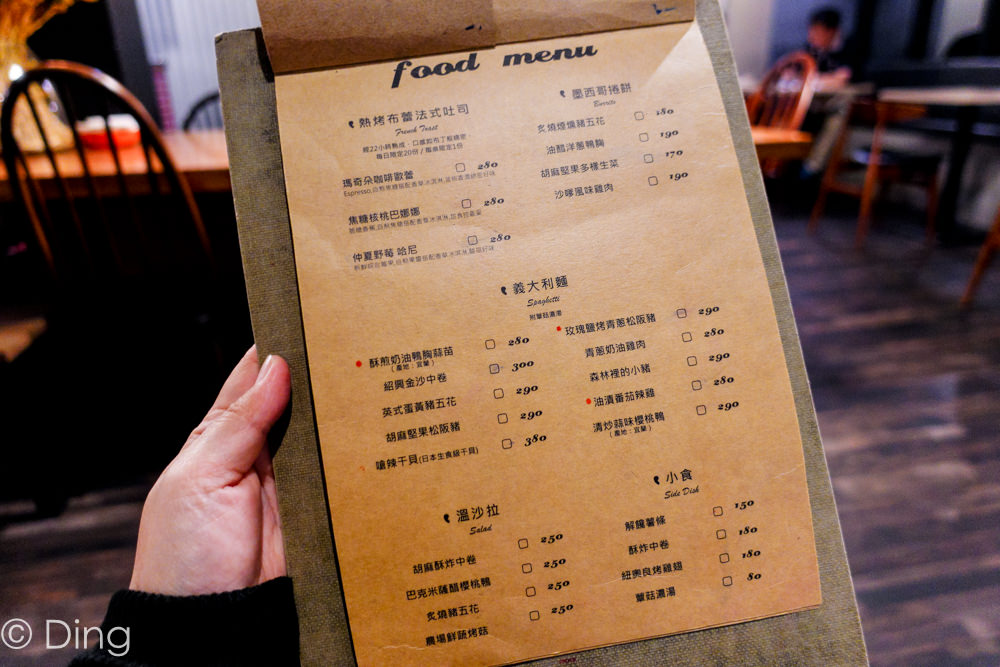 food menu
熱烤布蕾法式吐司
French Toast
經22小時熟成,口感如布丁般綿密
每日限定20份 / 每桌限定1份
瑪奇朵咖啡歐蕾 280
Espresso,自熬焦糖搭配香草冰淇淋
焦糖核桃巴娜娜 280
仲夏野莓 哈尼 280
墨西哥捲餅
Burrito
炙燒煙燻豬五花 180
油醋洋蔥鴨胸 190
胡麻堅果多樣生菜 170
沙嗲風味雞肉 190
義大利麵
Spaghetti
附蕈菇濃湯
酥煎奶油鴨胸蒜苗 280
(產地:宜蘭)
紹興金沙中卷 300
英式蛋黃豬五花 290
胡麻堅果松阪豬 290
嗆辣干貝(日本生食級干貝) 380
玫瑰鹽烤青蔥松阪豬 290
青蔥奶油雞肉 280
森林裡的小豬 290
油漬番茄辣雞 280
清炒蒜味櫻桃鴨 290
(產地:宜蘭)
溫沙拉
Salad
胡麻酥炸中卷 250
巴克米薩醋櫻桃鴨 250
炙燒豬五花 250
農場鮮蔬烤菇 250
小食
Side Dish
解饞薯條 150
酥炸中卷 180
紐奧良烤雞翅 180
蕈菇濃湯 80
© Ding